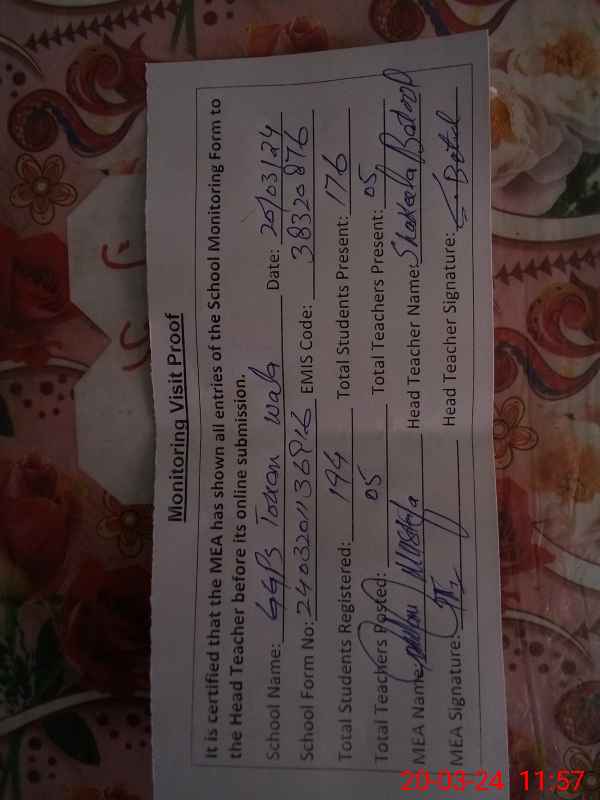 Monitoring Visit Proof
It is certified that the MEA has shown all entries of the School Monitoring Form to
the Head Teacher before its online submission.
School Name: GGPS Toxan Wala Date: 20/03/24
School Form No: EMIS Code: 38320876
Total Students Registered: 194 Total Students Present: 176
Total Teachers Posted: 05 Total Teachers Present: 05
MEA Name: Head Teacher Name: Shakeela Batool
MEA Signature: Head Teacher Signature: S. Batul
20-03-24 11:57